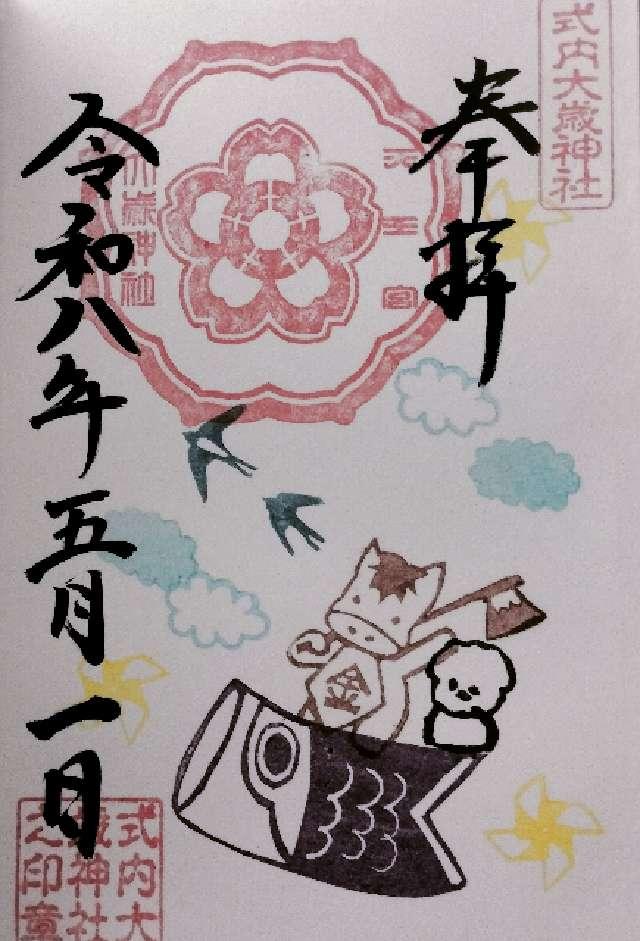 式内大歳神社
奉拝
元主宮
大歳神社
令和八年五月一日
金
式内大
歳神社
之印章